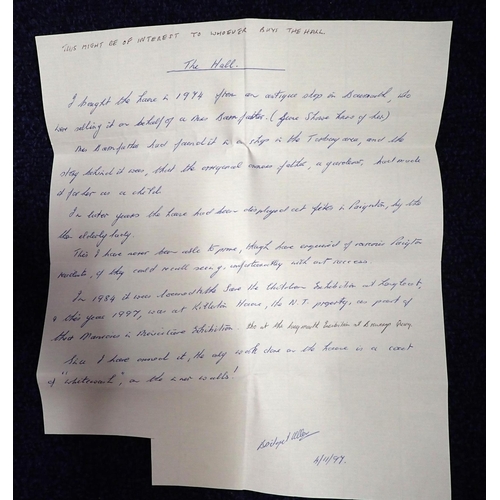 THIS MIGHT BE OF INTEREST TO WHOEVER BUYS THE HALL
The Hall.
I bought the house in 1974 from an antique shop in, who
were selling it on behalf of a Mrs (Jane Shaw has of her.)
Mrs had found it in a shop in the Torbay area, and the
story behind it was, that the original owners father, a gardener, had made
it for her as a child.
In later years the house had been displayed at fetes in Paignton, by the
then elderly lady.
This I have never been able to prove, though have enquired of various Paignton
residents, if they could recall seeing, unfortunately with out success.
In 1984 it was loaned to the Save the Children Exhibition at Longleat,
& this year 1997, was at Killerton House, the N.T. property, as part of
their Mansions in Miniature Exhibition also at the Exhibition at
Since I have owned it, the only work done on the house is a coat
of "whitewash", on the inner walls!
Bridget
4/11/97.